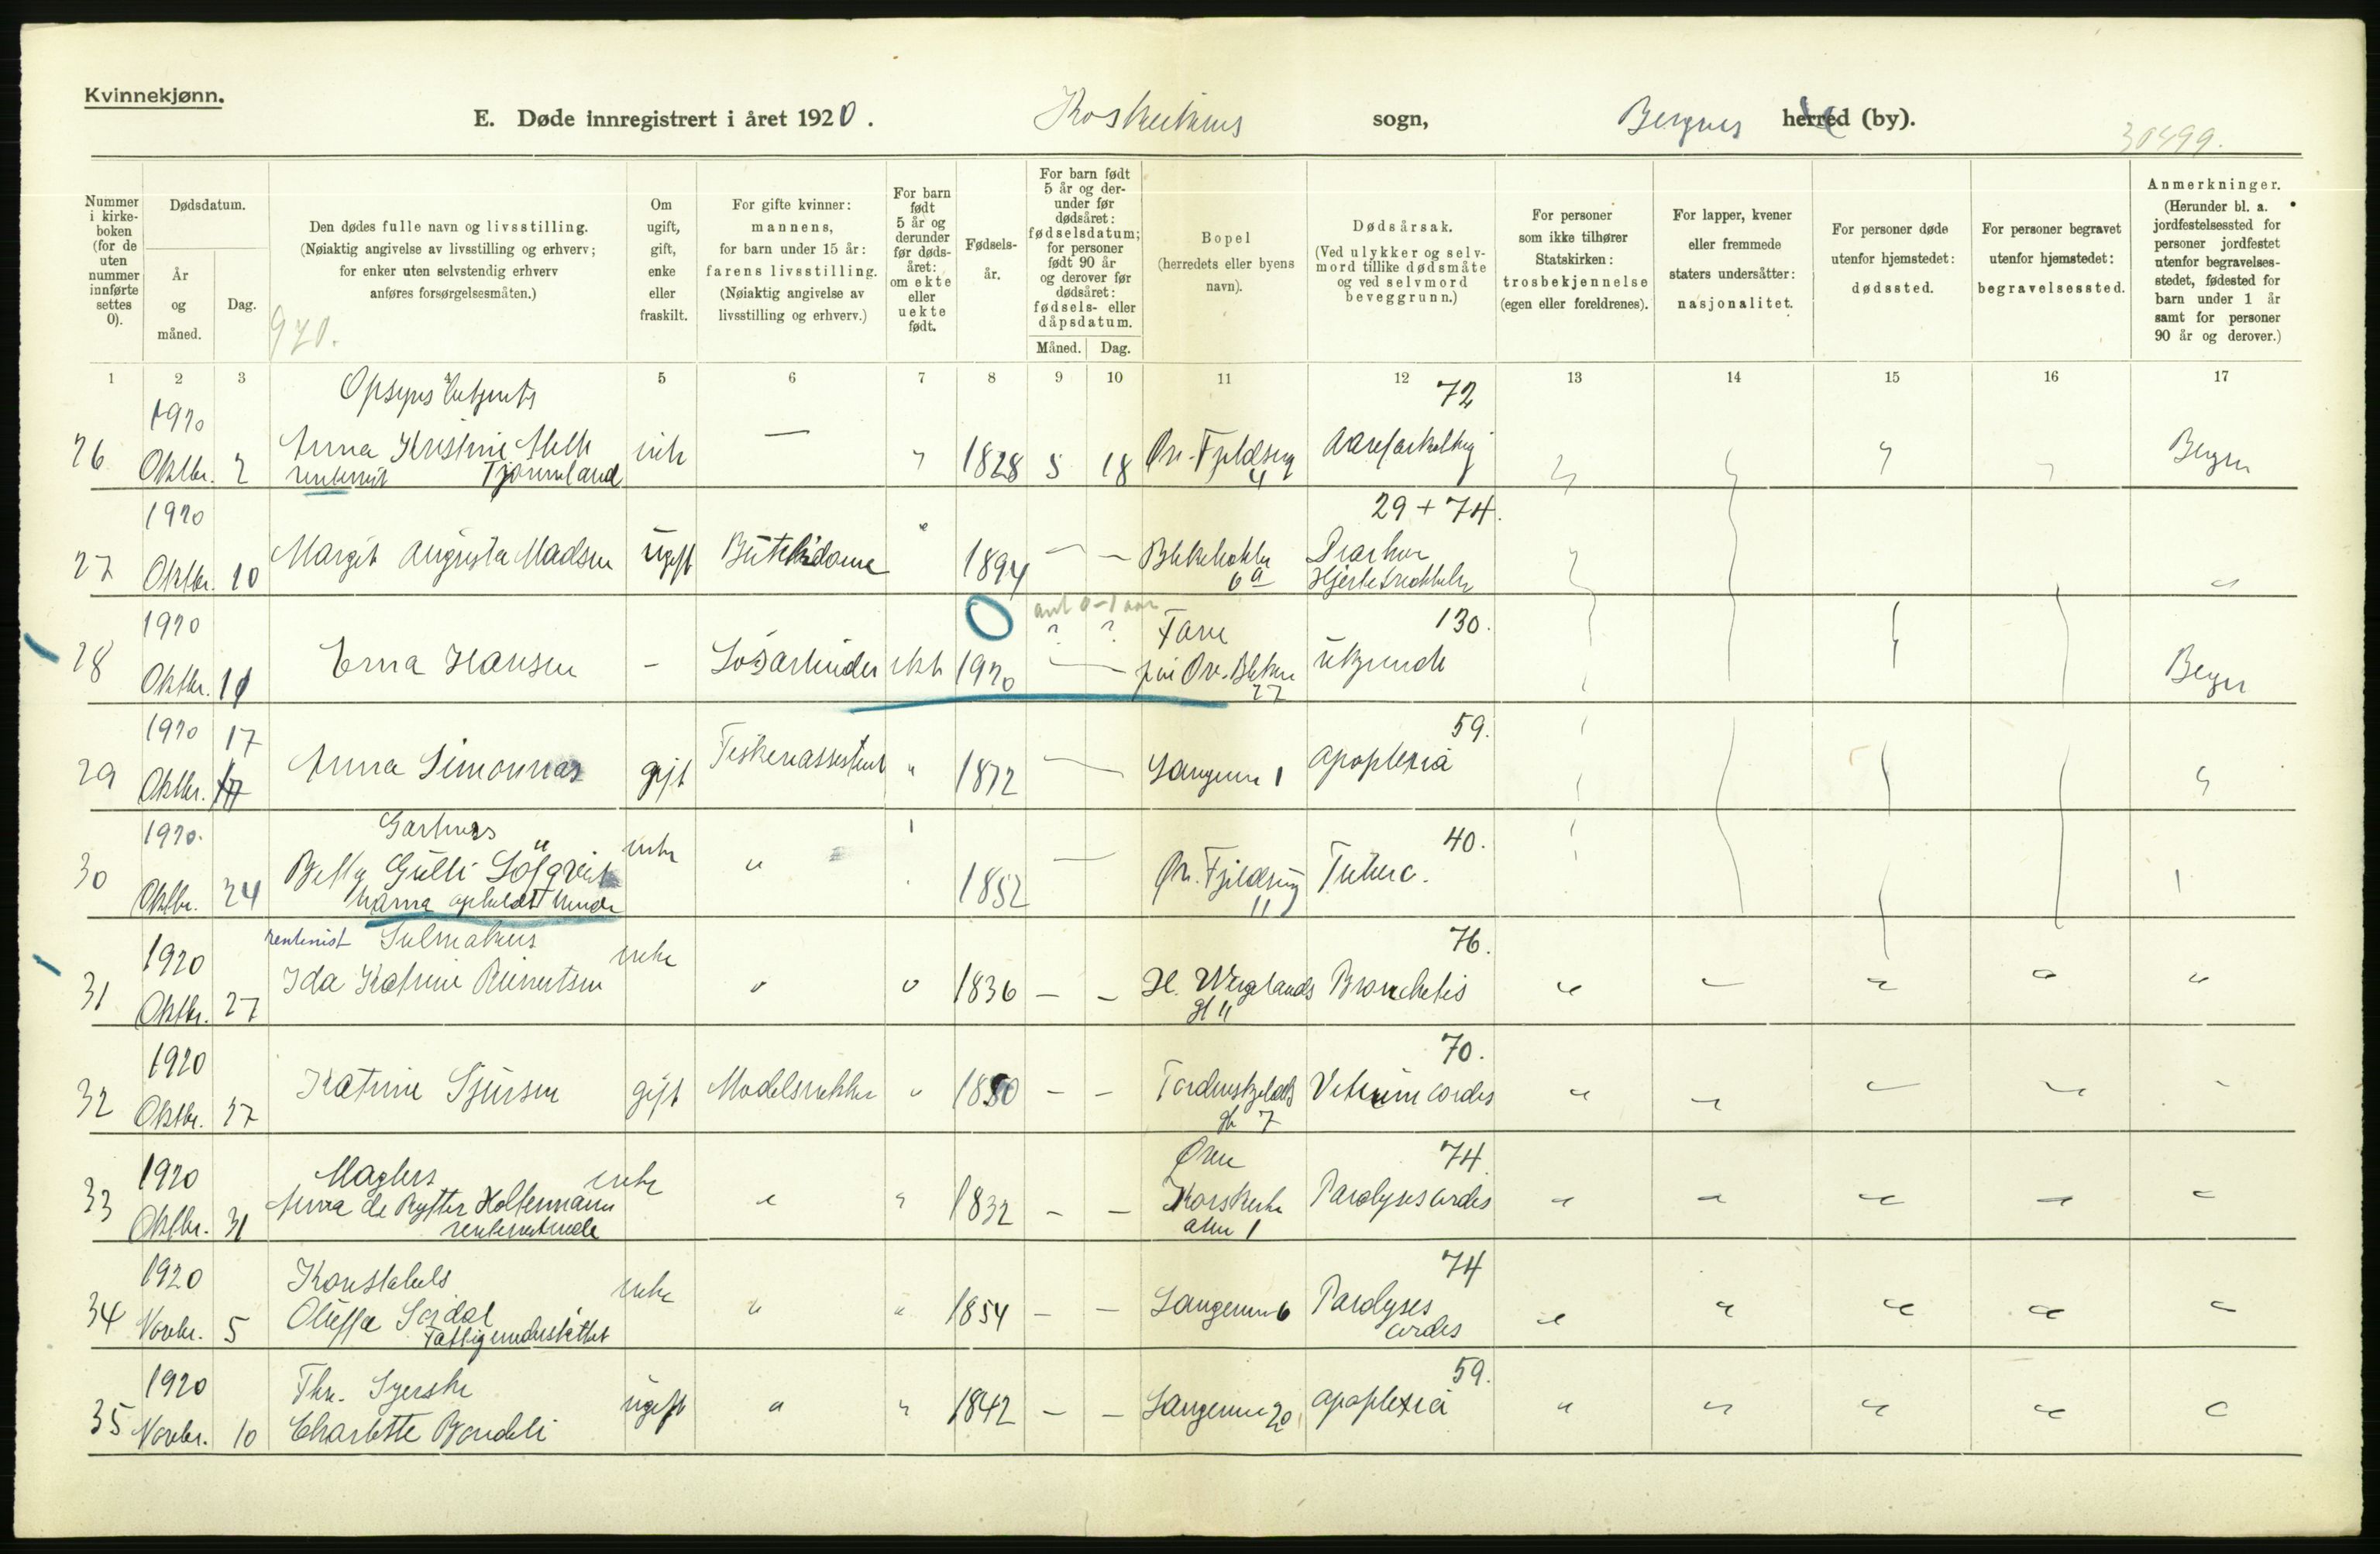 Kvinnekjønn.
E. Døde innregistrert i året 1920. Korskirkens sogn, Bergens herred (by).
30499.
Nummer i kirkeboken (for de uten nummer innførte settes 0).
Dødsdatum.
År og måned.
Dag.
Den dødes fulle navn og livsstilling.
(Nøiaktig angivelse av livsstilling og erhverv; for enker uten selvstendig erhverv anføres forsørgelsesmåten.)
970.
Om ugift, gift, enke eller fraskilt.
For gifte kvinner: mannens, for barn under 15 år: farens livsstilling.
(Nøiaktig angivelse av livsstilling og erhverv.)
For barn født 5 år og derunder før dødsåret: om ekte eller uekte født.
Fødselsår.
For barn født 5 år og derunder før dødsåret: fødselsdatum; for personer født 90 år og derover før dødsåret: fødsels- eller dåpsdatum.
Måned. Dag.
Bopel (herredets eller byens navn).
Dødsårsak.
(Ved ulykker og selvmord tillike dødsmåte og ved selvmord beveggrunn.)
For personer som ikke tilhører Statskirken: trosbekjennelse (egen eller foreldrenes).
For lapper, kvener eller fremmede staters undersåtter: nasjonalitet.
For personer døde utenfor hjemstedet: dødssted.
For personer begravet utenfor hjemstedet: begravelsessted.
Anmerkninger.
(Herunder bl. a. jordfestelsessted for personer jordfestet utenfor begravelsesstedet, fødested for barn under 1 år samt for personer 90 år og derover.)
1 2 3 4 5 6 7 8 9 10 11 12 13 14 15 16 17
Opsyns 72
1920
26 Oktbr. 2 Anna Kristine enke — " 1828 5 18 Øvr. Fjeldsmg 4 Aareforkalkning Bergen
rentenist Tjømeland
1920 29 + 74.
27 Oktbr. 10 Margit Augusta Madsen ugift Butikdame " 1894 — — 6a Diarhoe
Hjertesvækkelse "
1920 0 ant 0-1 aar ? ? Fane 130.
28 Oktbr. 11 Erna Hansen - Løsarbeider ekte 1920 — på Øvr. Blekev. 27 ukjendt Bergen
1920 17 59.
29 Oktbr. Anna gift " 1872 — Langeven 1 apoplexia "
1920. Gartners enke 40.
30 Oktbr. 24 Betsy Gulli Löfqvist " 1852 — Øvr. Fjeldsmg 11 Tuberc.
børns opholdt hende
rentenist Seilmakers enke 76.
1920
31 Oktbr. 27 Ida Katrine Reinertsen " " 1836 — — H. Wergelands gt 11 Bronchitis " " " " "
1920 70.
32 Oktbr. 27 Katrine Sjursen gift Modelsnekker " 1850 — — Tordenskjolds gt 7 Vitium cordis " " " " "
1920 Mæglers enke Øvre 74.
33 Oktbr. 31 Anna de Rytter Holtermann " " 1832 — — Korskirke alm 1 Paralyses cordis " " " " "
1920 Konstabels enke 74
34 Novbr. 5 Oluffa " " 1854 — — Langeven 6 Paralyses cordis " " " " "
Fattigunderstøttet
1920 Fhv. Syerske 59.
35 Novbr. 10 Charlotte Bondeli ugift " " 1842 — — Langeven 20 apoplexia " " " " "